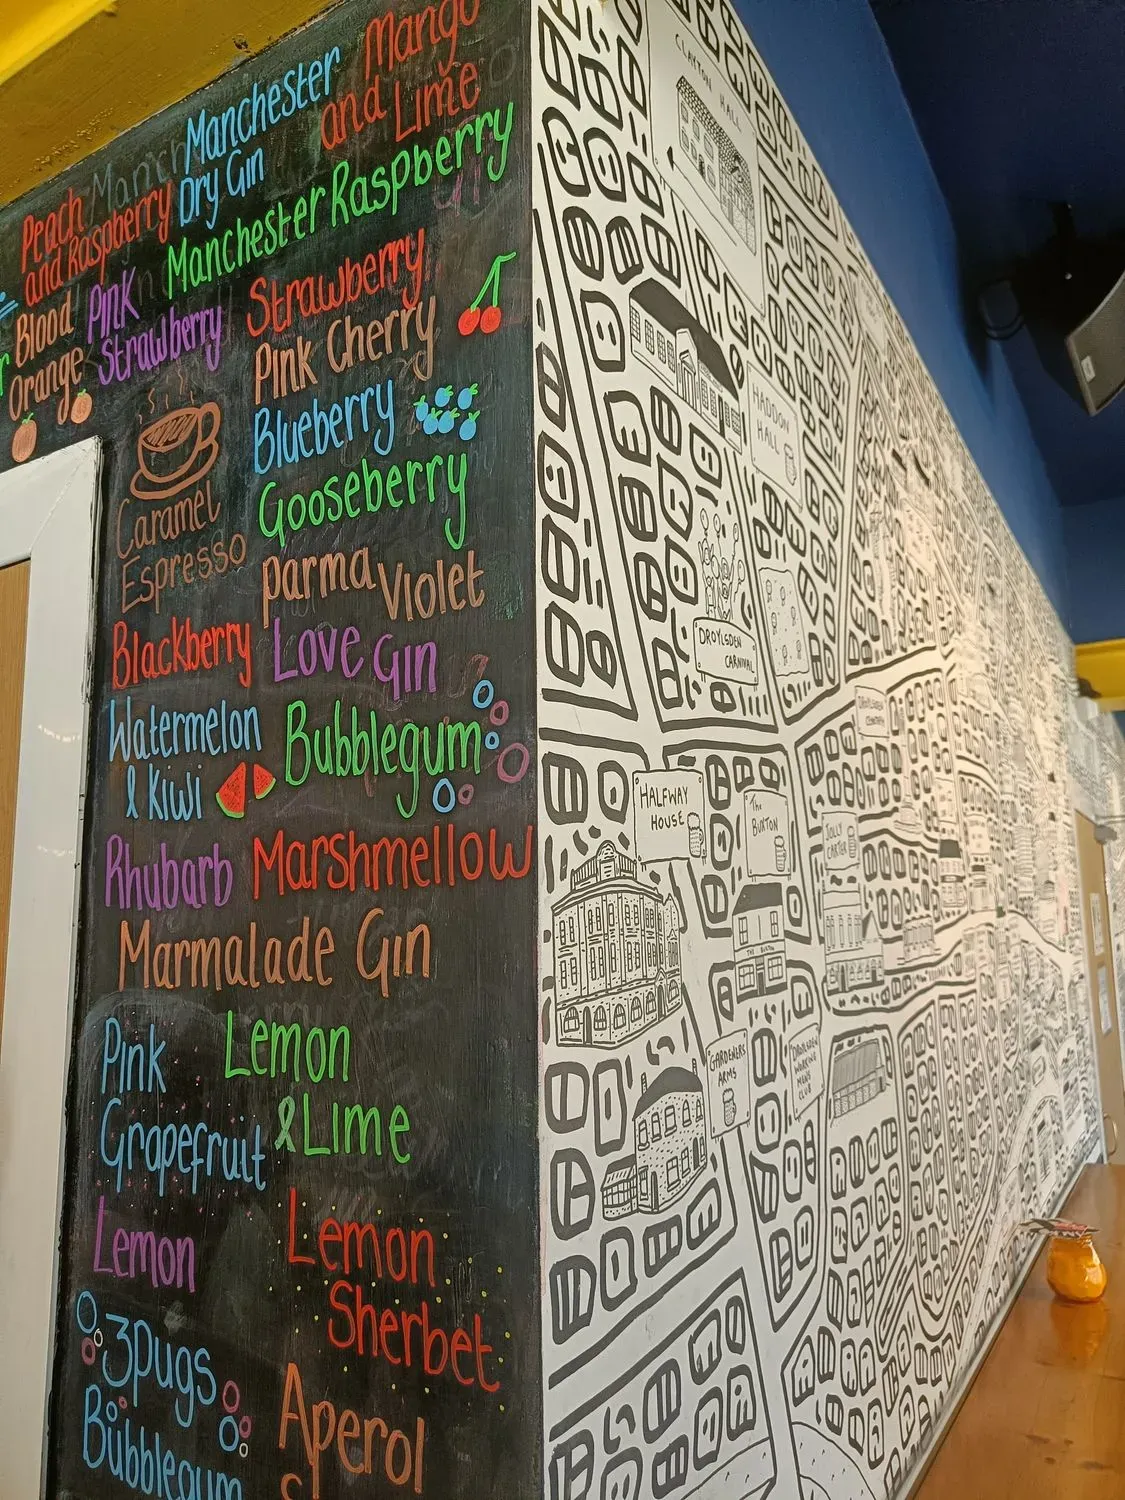 Mango
and Lime
Manchester
Dry Gin
Peach
and Raspberry
Manchester Raspberry
Blood
Orange
Pink
Strawberry
Strawberry
Pink Cherry
Blueberry
Gooseberry
Caramel
Espresso
Parma Violet
Blackberry
Love Gin
Watermelon
& Kiwi
Bubblegum
Rhubarb
Marshmellow
Marmalade Gin
Pink
Grapefruit
Lemon
& Lime
Lemon
Lemon
Sherbet
3pugs
Bubblegum
Aperol
CLAYTON HALL
HADDON
HALL
DROYLSDEN
CARNIVAL
HALFWAY
HOUSE
The
BUXTON
JOLLY
CARTER
THE BUXTON
GARDENERS
ARMS
DROYLSDEN
WORKING
MENS
CLUB